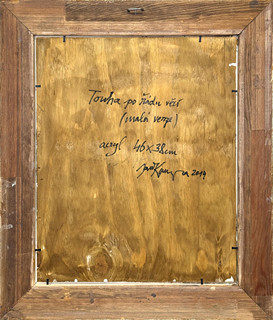 Touha po řádu věcí
(malá verze)
acryl 46x38cm
2019